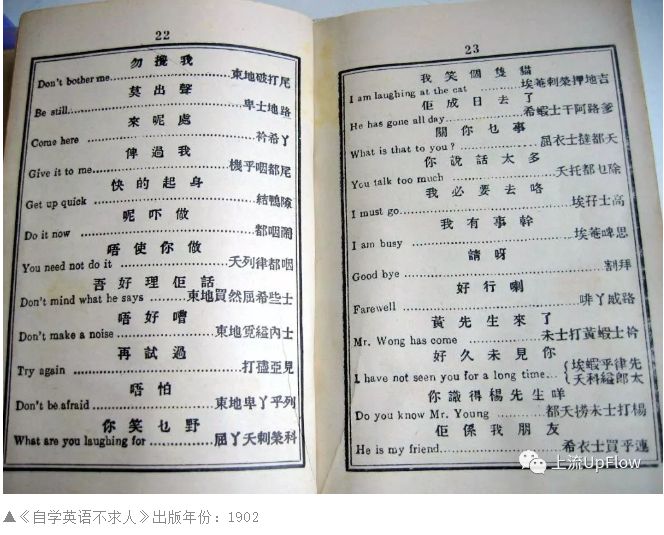 22
勿攪我
Don't bother me 東地破打尾
莫出聲
Be still 卑士地路
來呢處
Come here 衿希丫
俾過我
Give it to me 機乎咽都尾
快的起身
Get up quick 結鴨隙
呢吓做
Do it now 都咽
唔使你做
You need not do it 夭列律都咽
吾好理佢話
Don't mind what he says 東地買然屈希些士
唔好嘈
Don't make a noise 東地覔縊內士
再試過
Try again 打亞見
唔怕
Don't be afraid 東地卑丫乎列
你笑乜野
What are you laughing for 屈丫夭剌榮科
23
我笑個隻貓
I am laughing at the cat 埃菴剌榮押地吉
佢成日去了
He has gone all day 希蝦士干阿路爹
關你乜事
What is that to you? 屈衣士撻都夭
你說話太多
You talk too much 夭托都乜除
我必要去咯
I must go 埃孖士高
我有事幹
I am busy 埃菴啤思
請呀
Good bye 割拜
好行喇
Farewell 啡丫威路
黃先生來了
Mr. Wong has come 未士打黃蝦士衿
好久未見你
I have not seen you for a long time 埃蝦乎律先
夭科縊郎太
你識得楊先生咩
Do you know Mr. Young 都夭撈未士打楊
佢係我朋友
He is my friend 希衣士買乎連
上流UpFlow
▲《自学英语不求人》出版年份：1902